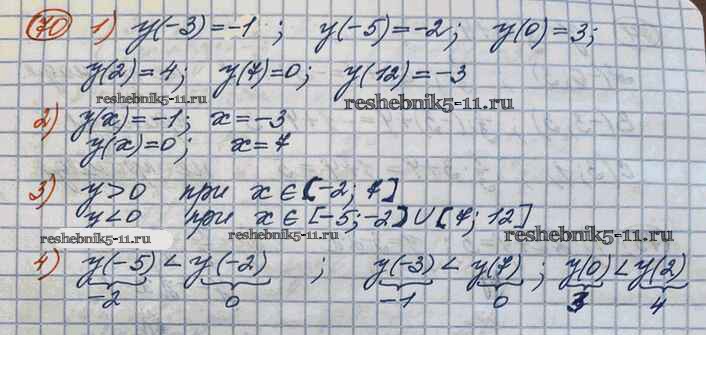 70 1) y(-3)=-1; y(-5)=-2; y(0)=3;
y(2)=4; y(7)=0; y(12)=-3
reshebnik5-11.ru reshebnik5-11.ru
2) y(x)=-1; x=-3
y(x)=0; x=7
3) y>0 при x∈[-2; 7]
y<0 при x∈[-5;-2]∪[7; 12]
reshebnik5-11.ru reshebnik5-11.ru reshebnik5-11.ru
4) y(-5)<y(-2) ; y(-3)<y(7) ; y(0)<y(2)
-2 0 -1 0 3 4